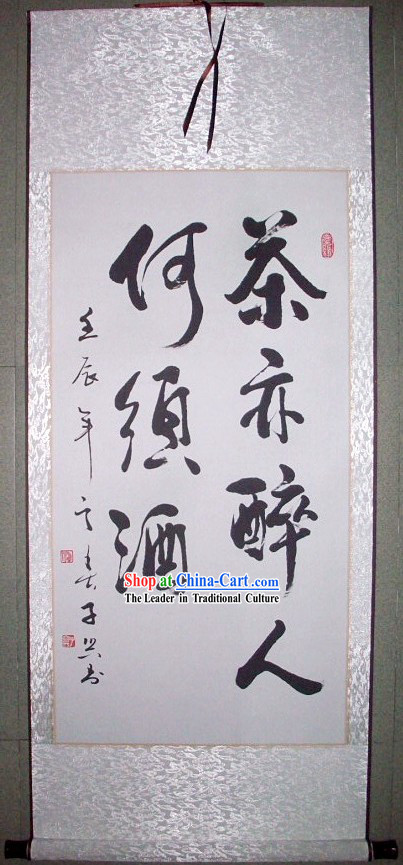 茶亦醉人
何須酒
壬辰年
子興書
Shop at China-Cart.com
The Leader in Traditional Culture